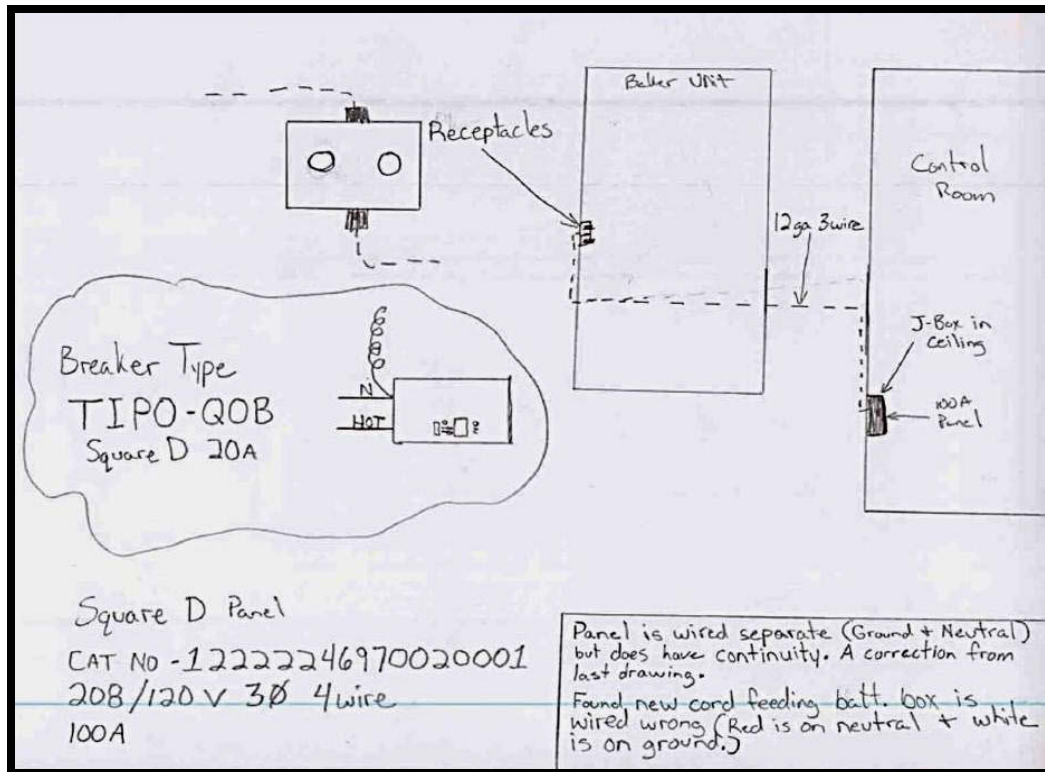 Unit
Receptacles
Control
Room
12ga 3wire
J-Box in
Ceiling
100A
Panel
Breaker Type
TIPO-QOB
Square D 20A
N
HOT
Square D Panel
CAT NO -12222246970020001
208/120 V 3Ø 4wire
100A
Panel is wired separate (Ground + Neutral)
but does have continuity. A correction from
last drawing.
Found new cord feeding batt. box is
wired wrong (Red is on neutral + white
is on ground.)